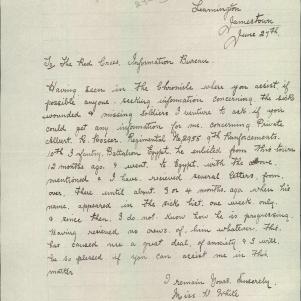 Leamington
Jamestown
June 27th.
To The Red Cross, Information Bureau.
Having seen in The Chronicle where you assist if
possible anyone, seeking information concerning, the sick
wounded & missing Soldiers I venture to ask if you
could get any information for me, concerning Private
Albert. H. Regimental No 2955 9th Reinforcements.
10th Infantry, Battalion Egypt. he enlisted from this town
12 months ago. & went. to Egypt, with the above,
mentioned & I have, received several letters. from,
over, there until about 3 or 4 months, ago when his
name, appeared in the sick list, one week, only,
& since then, I do not know how he is progressing.
Having received no answ. of, him whatever. this,
has caused me a great, deal, of anxiety & I will,
be so pleased if you can assist me in this
matter
I remain Yours. Sincerely.
Miss White